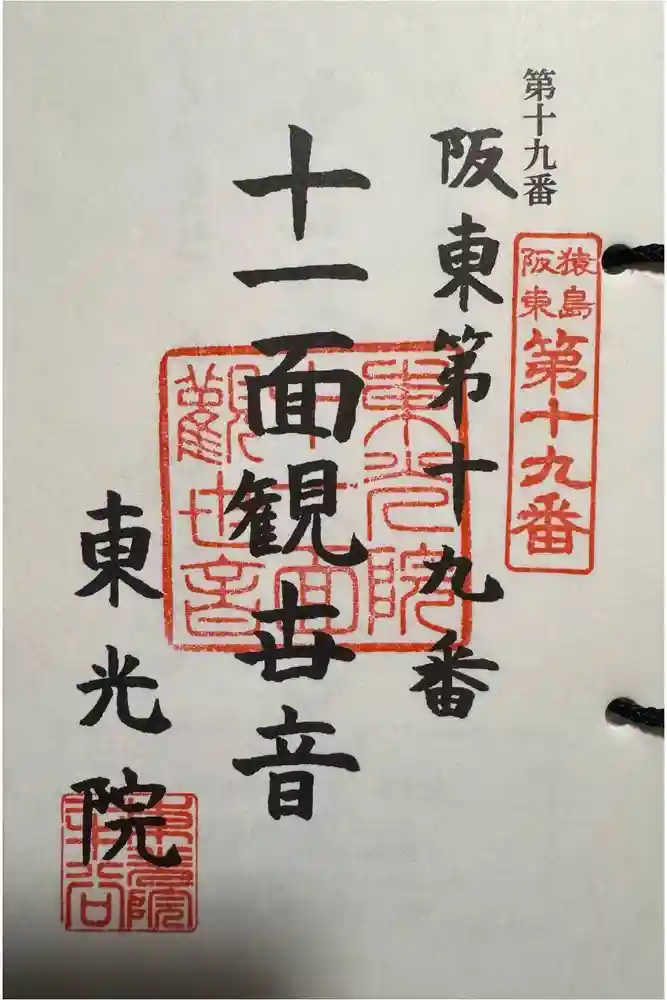 第十九番
猿島
阪東
第十九番
阪東第十九番
東光院
十一面
觀世音
十一面観世音
東光院